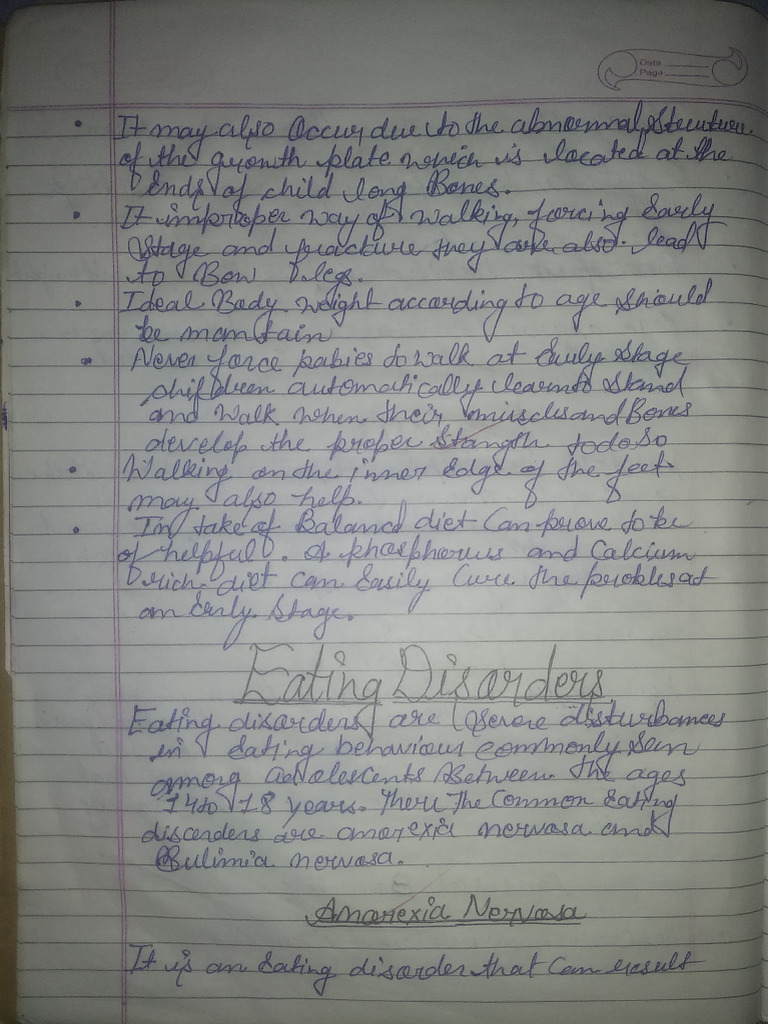 Date
Page
• It may also Occur due to the abnormal, Structure
of the growth plate which is located at the
Ends of child long Bones.
• It improper way of walking, forcing Early
Stage and fracture they are also lead
to Bow legs.
• Ideal Body weight according to age should
be maintain
• Never force babies to walk at Early stage
children automatically learn to Stand
and walk when their muscles and Bones
develop the proper Strangth to do so
• Walking on the inner Edge of the feet
may also help.
• In take of Balanced diet Can prove to be
of helpful. A phosphorus and Calcium
rich diet can Easily Cure the problem at
an Early Stage.
Eating Disorders
Eating disorders are Severe disturbances
in Eating behaviour commonly Seen
among adolescents Between the ages
14 to 18 years. There The Common Eating
discorders are anorexia nervosa and
Bulimia nervosa.
Anorexia Nervosa
It is an Eating disorder that Can result